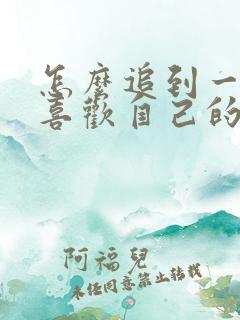 怎麼追到一
喜歡自己的
阿福兒
未經同意禁止轉載